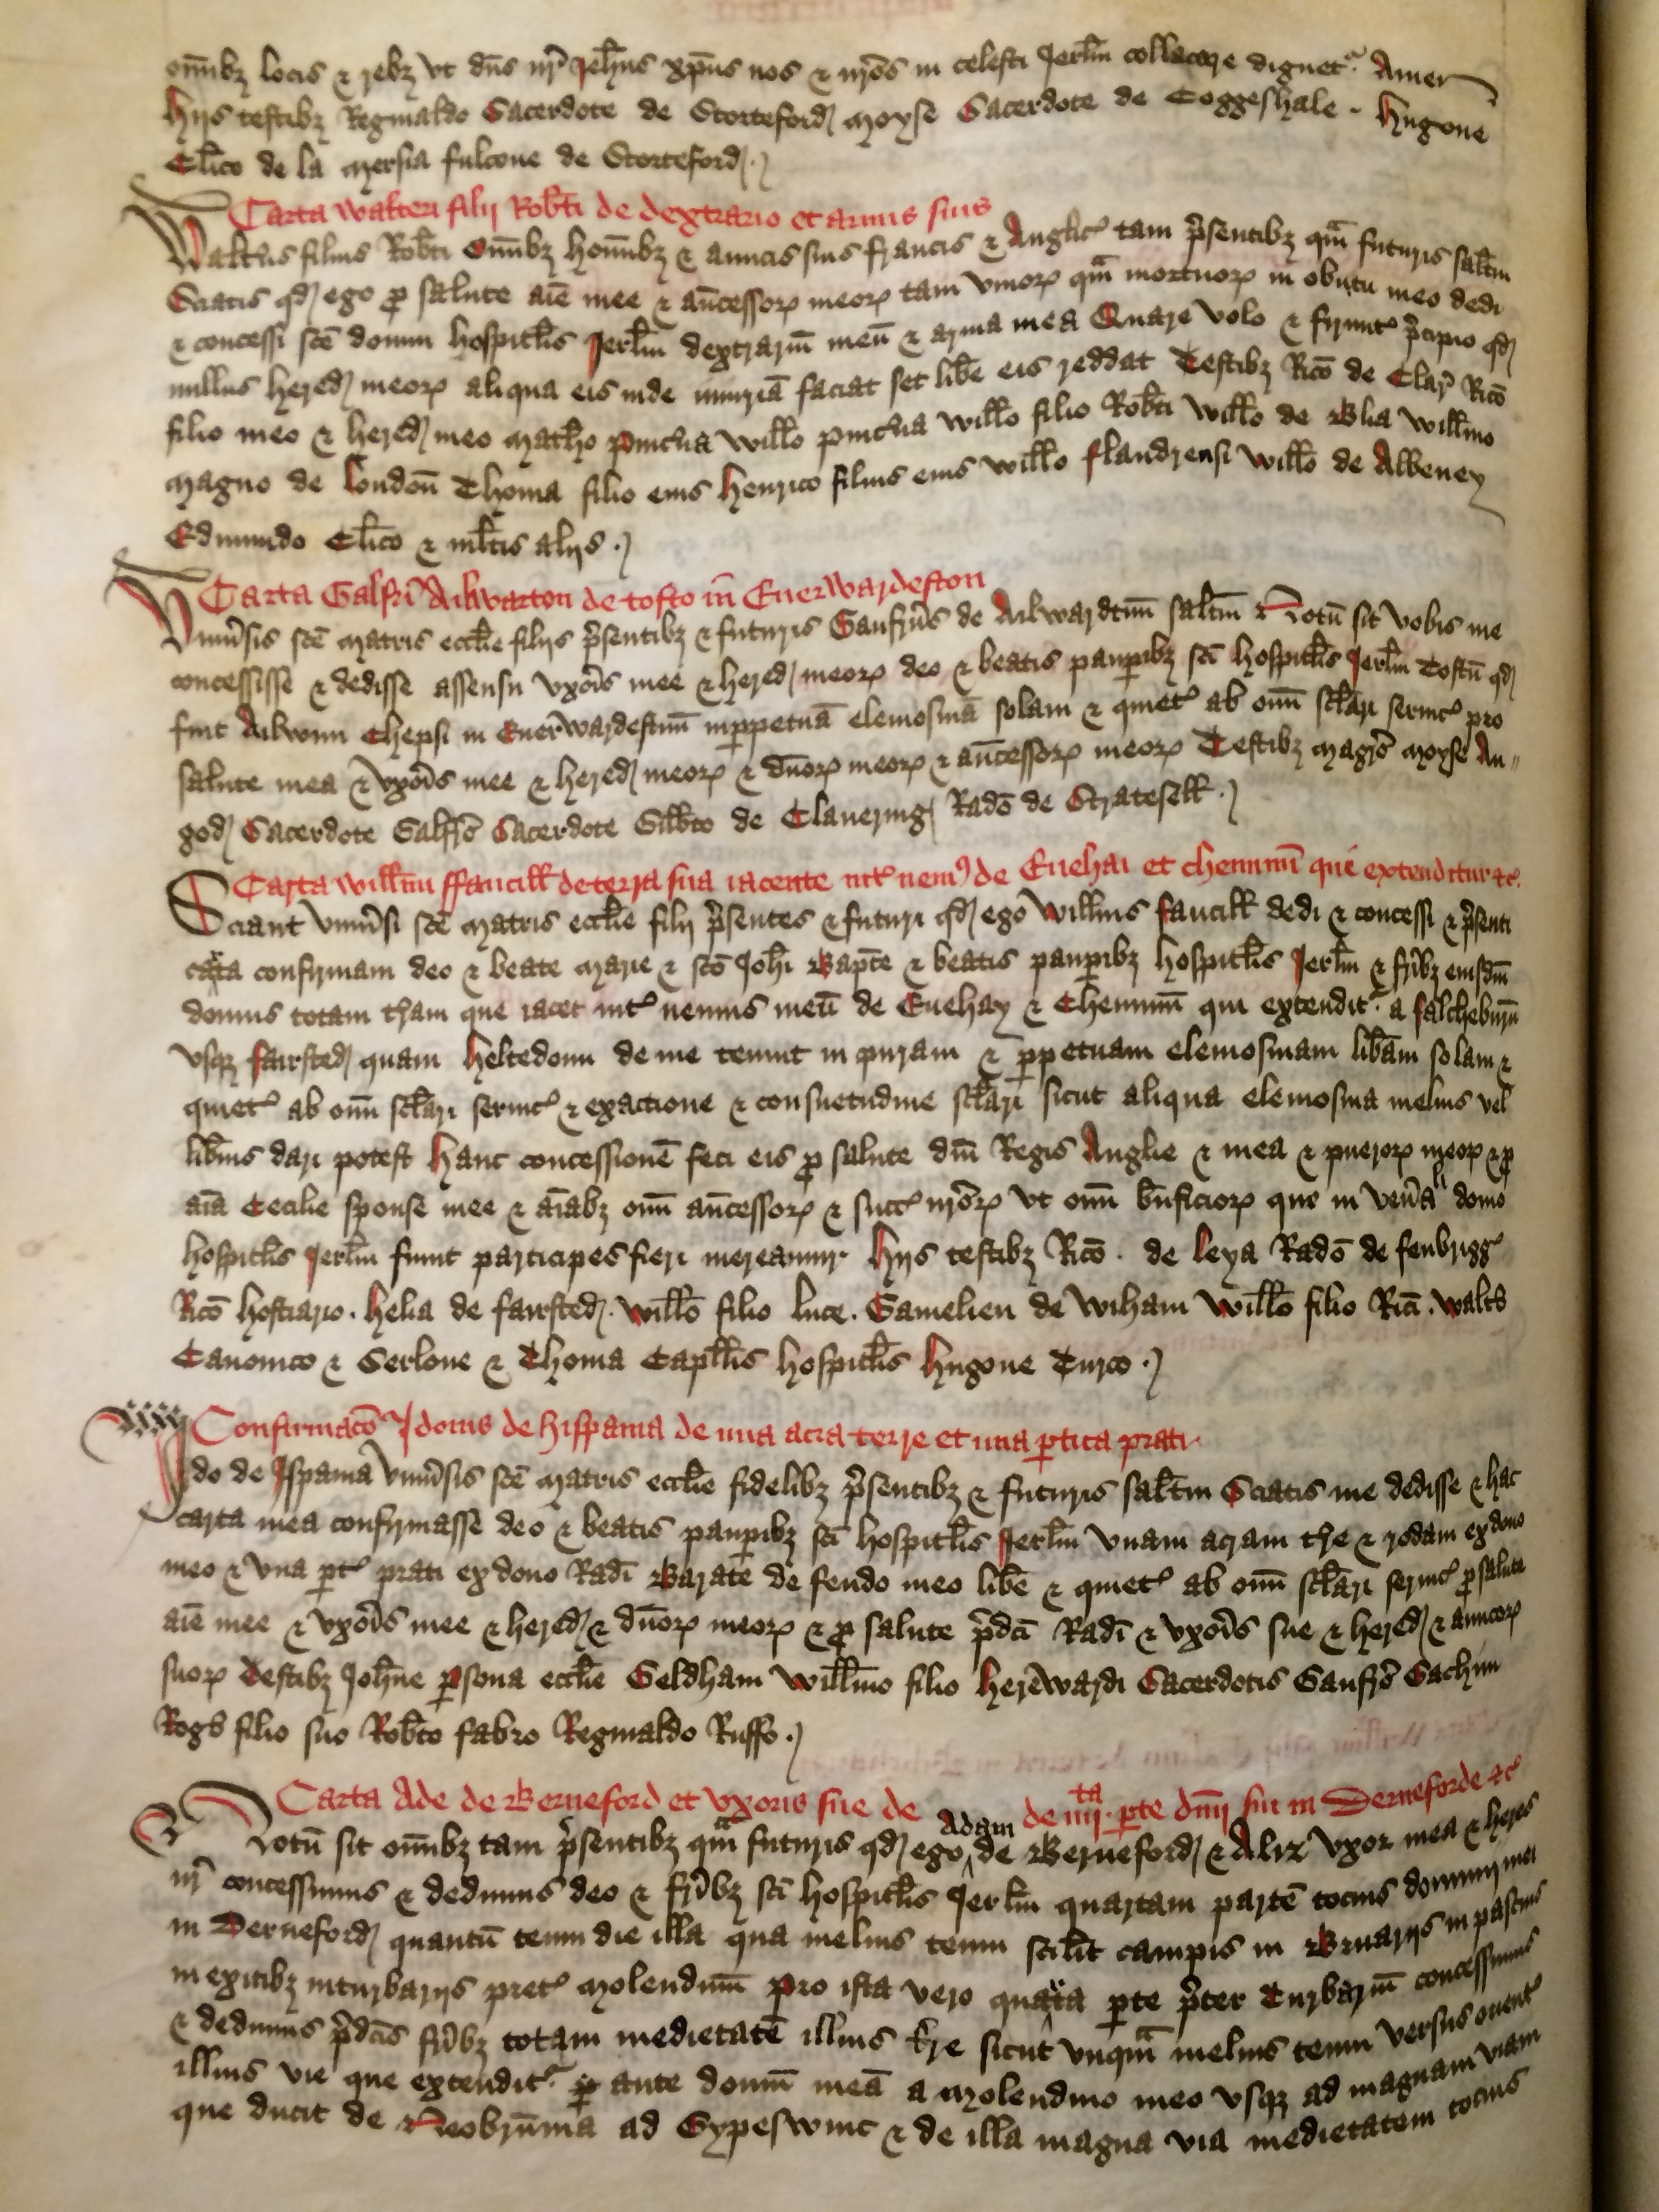 om̄ibꝫ locis & rebꝫ vt dn̄s nr̄ Jeħus xp̄us nos & nr̄os in celesti Jerlm̄ collocare dignetᷣ Amen
Hijs testibꝫ Reginaldo Sacerdote de Storteford Moyse Sacerdote de Coggeshale . Hugone
Cl̄ico de la Mersia fulcone de Storteford .
Carta walteri filij Rob̄ti de dextrario et armis suis
Walt̄us filius Rob̄ti Om̄ibꝫ hom̄ibꝫ & amicis suis francis & Anglic̄ tam p̄sentibꝫ qm̄ futuris salt̄m
Sciatis qd̄ ego ꝓ salute aīe mee & an̄cessoꝝ meoꝝ tam vivoꝝ qm̄ mortuoꝝ in obitu meo dedi
& concessi sc̄e domui hospitl̄is Jerlm̄ dextrariū meū & arma mea Quare volo & firmit̄ p̄cipio qd̄
nullus hered̄ meoꝝ aliqua eis inde iniuriā faciat set lib̄e eis reddat Testibꝫ Ric̄o de Clar̄ Ric̄o
filio meo & hered̄ meo Math̄o pinc̄na will̄o pinc̄na will̄o filio Rob̄ti will̄o de Blia will̄mo
magno de londoñ Thoma filio eius Henrico filius eius will̄o flandrensi will̄o de Albeney
Edmundo Cl̄ico & ml̄tis alijs .
Carta Galfr̄i Ailwarton de tofto in̄ Euerwardeston
Vniūsis sc̄e Matris eccl̄ie filijs p̄sentibꝫ & futuris Gaufr̄us de Ailwardtun̄ salt̄m Notū sit vobis me
concessisse & dedisse assensu vxor̄is mee & hered̄ meoꝝ deo & beatis paupibꝫ sc̄i hospitl̄is Jerlm̄ Toftū qd̄
fuit Ailwini Chepsi in Euerwardestun̄ inꝑpetuā elemosinā solam & quiet̄ ab om̄i scl̄ari seruic̄ pro
salute mea & vxor̄is mee & hered̄ meoꝝ & dn̄oꝝ meoꝝ & an̄cessoꝝ meoꝝ Testibꝫ Magr̄o Moyse An
god̄ Sacerdote Galfr̄o Sacerdote Gilb̄to de Clauering Rad̄o de Stratesell̄ .
Carta will̄mi ffaucill̄ de terra sua iacente int̄ nem⁹ de Euehai et cheminū que extenditur &c̄.
Sciant vniūsi sc̄e Matris eccl̄ie filij p̄sentes & futuri qd̄ ego Will̄mus faucill̄ dedi & concessi & p̄senti
carta confirmam deo & beate Marie & sc̄o Joh̄i Bapt̄e & beatis paupibꝫ hospitl̄is Jerlm̄ & fr̄ibꝫ eiusdm̄
domus totam t̄ram que iacet int̄ nemus meū de Euehay & Cheminū qui extendit᷑ a falcheburn̄
vsqꝫ fairsted̄ quam Heltedonn de me tenuit in puram & ꝑpetuam elemosinam lib̄am solam &
quiet̄ ab om̄i scl̄ari seruic̄ & exactione & consuetudine scl̄ari sicut aliqua elemosina melius vel
lib̄ius dari potest Hanc concessionē feci eis ꝓ salute dn̄i Regis Anglie & mea & pueroꝝ meoꝝ & ꝓ
aīa Cecilie sponse mee & aīabꝫ om̄i an̄cessoꝝ & succ̄ nr̄oꝝ vt om̄i bn̄ficioꝝ que in ven̄abl̄i domo
hospitl̄is Jerlm̄ fiunt participes fieri mereamur Hijs testibꝫ Ric̄o . de leya Rad̄o de fenbrigḡ
Ric̄o hostiario . Helia de fairsted̄ . will̄o filio luce . Gamelien de Wiham Will̄o filio Ric̄i . walt̄o
Canonico & Serlone & Thoma Capll̄is hospitl̄is Hugone Turco .
Confirmac̄o Idonis de hispania de una acra terre et una ꝑtica prati
Ido de Ispania Vniūsis sc̄e Matris eccl̄ie fidelibꝫ p̄sentibꝫ & futuris salt̄m Sciatis me dedisse & hac
carta mea confirmasse deo & beatis paupibꝫ sc̄i hospitl̄is Jerlm̄ vnam acram t̄re & rodam ex dono
meo & vna ꝑt̄ prati ex dono Rad̄i Barate de feudo meo lib̄e & quiet̄ ab om̄i scl̄ari seruic̄ ꝓ salute
aīe mee & vxor̄is mee & hered̄ & dn̄oꝝ meoꝝ & ꝓ salute p̄dc̄i Rad̄i & vxor̄is sue & hered̄ & amicoꝝ
suoꝝ Testibꝫ Joh̄ne ꝑsona eccl̄ie Geldham will̄mo filio Herewardi Sacerdotis Gaufr̄o Gachun
Roḡo filio suo Rob̄to fabro Reginaldo Ruffo .
Carta Ade de Berneford et vxoris sue de de iiij.ta ꝑte dn̄ij sui in Derneforde &c̄
Notū sit om̄ibꝫ tam p̄sentibꝫ qm̄ futuris qd̄ ego Adam de Berneford̄ & Aliz vxor mea & heres
nr̄ concessimus & dedimus deo & fr̄ibꝫ sc̄i hospitl̄is Jerlm̄ quartam partē tocius dominij mei
in Derneford̄ quantū tenui die illa qua melius tenui scilit̄ campis in Bruarijs in pascuis
in exitibꝫ inturbarijs pret̄ Molendinū Pro ista vero quarta ꝑte p̄ter Turbariū concessimus
& dedimus p̄dc̄is fr̄ibꝫ totam medietatē illius t̄re sicut vnqm̄ melius tenui versus orient̄
illius vie que extendit᷑ ꝑ ante domū meā a Molendino meo vsqꝫ ad magnam viam
que ducit de Neobrun̄ia ad Gypeswinc & de illa magna via medietatem tocius